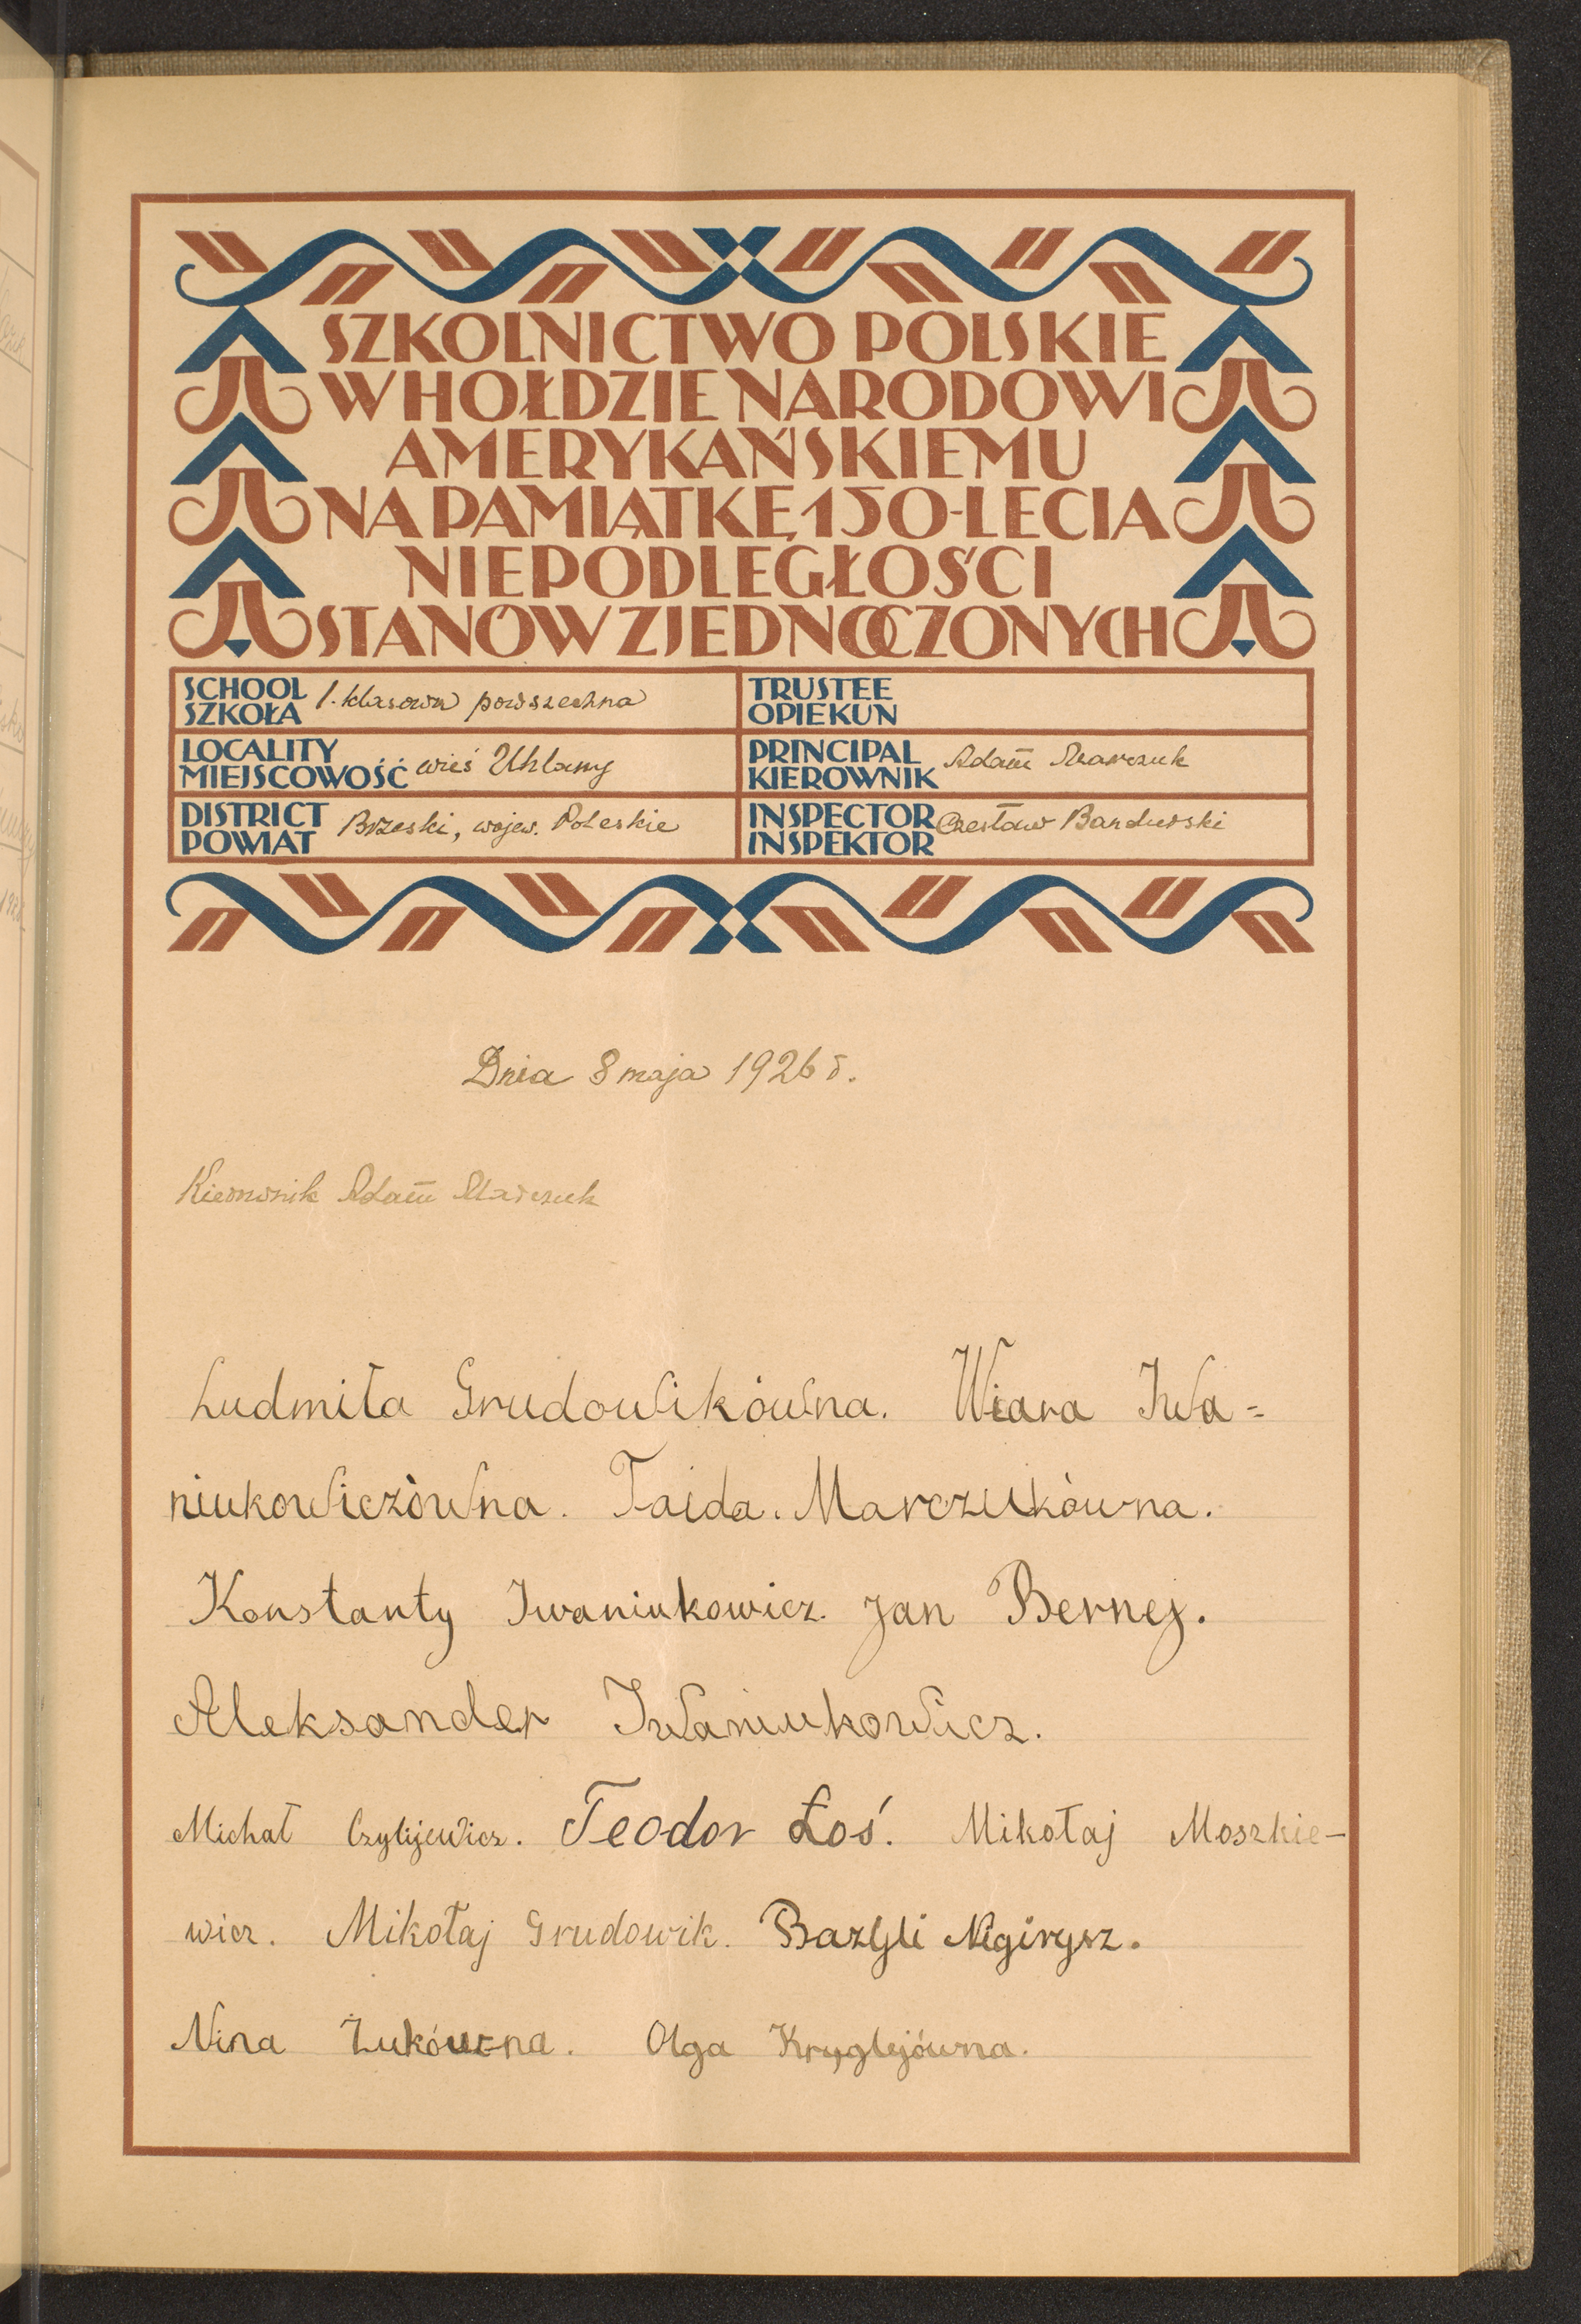 SZKOLNICTWO POLSKIE
W HOŁDZIE NARODOWI
AMERYKAŃSKIEMU
NA PAMIĄTKĘ 150-LECIA
NIEPODLEGŁOŚCI
STANÓW ZJEDNOCZONYCH
SCHOOL
SZKOŁA 1. klasowa powszechna
TRUSTEE
OPIEKUN
LOCALITY
MIEJSCOWOŚĆ wieś Uhlany
PRINCIPAL
KIEROWNIK Adam Marczuk
DISTRICT
POWIAT Brzeski, wojew. Poleskie
INSPECTOR
INSPEKTOR Czesław Bandurski
Dnia 8 maja 1926 r.
Kierownik Adam Marczuk
Ludmiła Grudowikówna. Wiara Iwa=
niukowiczówna. Taida. Marczukówna.
Konstanty Iwaniukowicz. Jan Bernej.
Aleksander Iwaniukowicz.
Michał Teodor Łoś. Mikołaj Moszkie-
wicz. Mikołaj Grudowik. Bazyli
Nina Żukówna. Olga Kryglejówna.